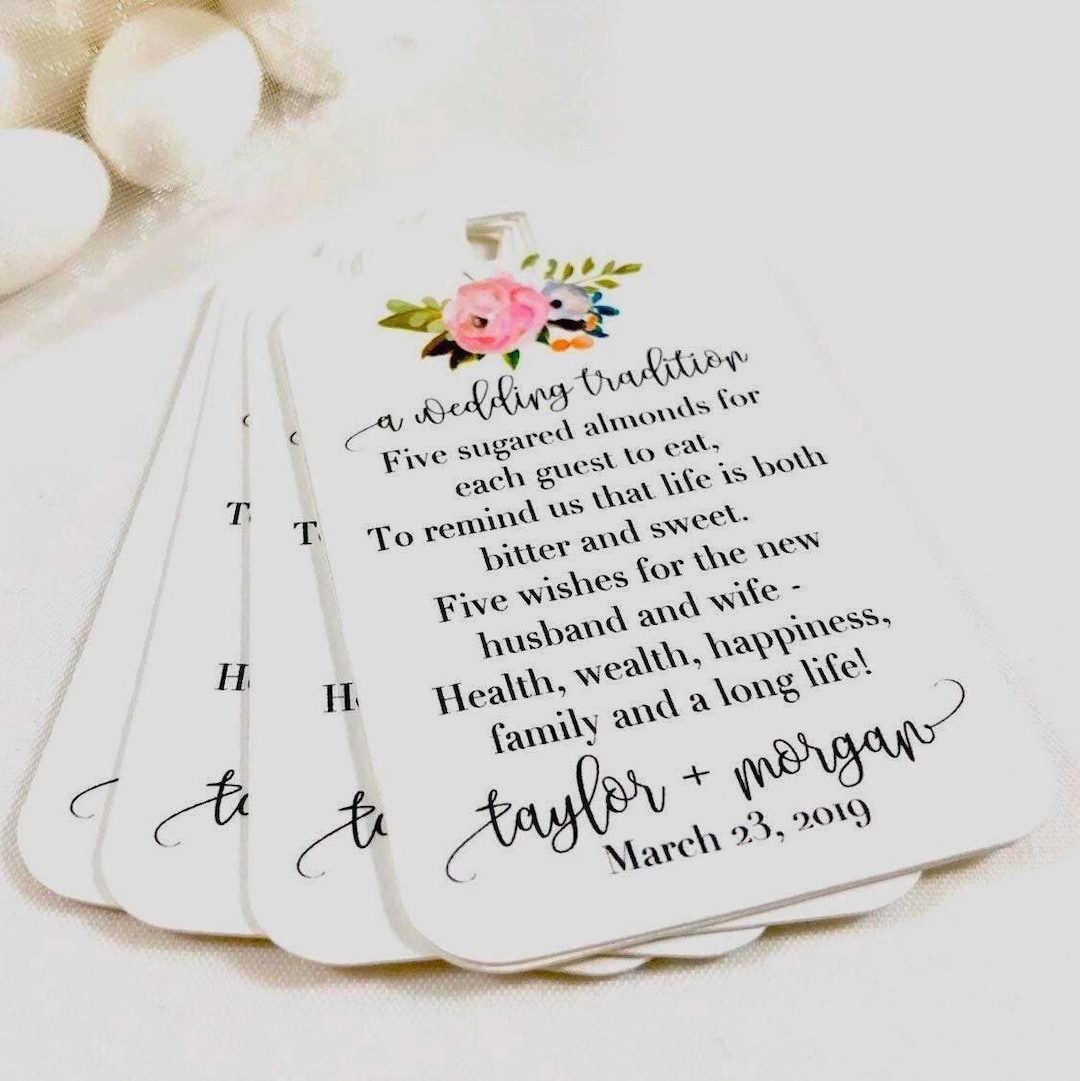 a wedding tradition
Five sugared almonds for
each guest to eat,
To remind us that life is both
bitter and sweet.
Five wishes for the new
husband and wife -
Health, wealth, happiness,
family and a long life!
taylor + morgan
March 23, 2019
T
T
H
He
ta
ta